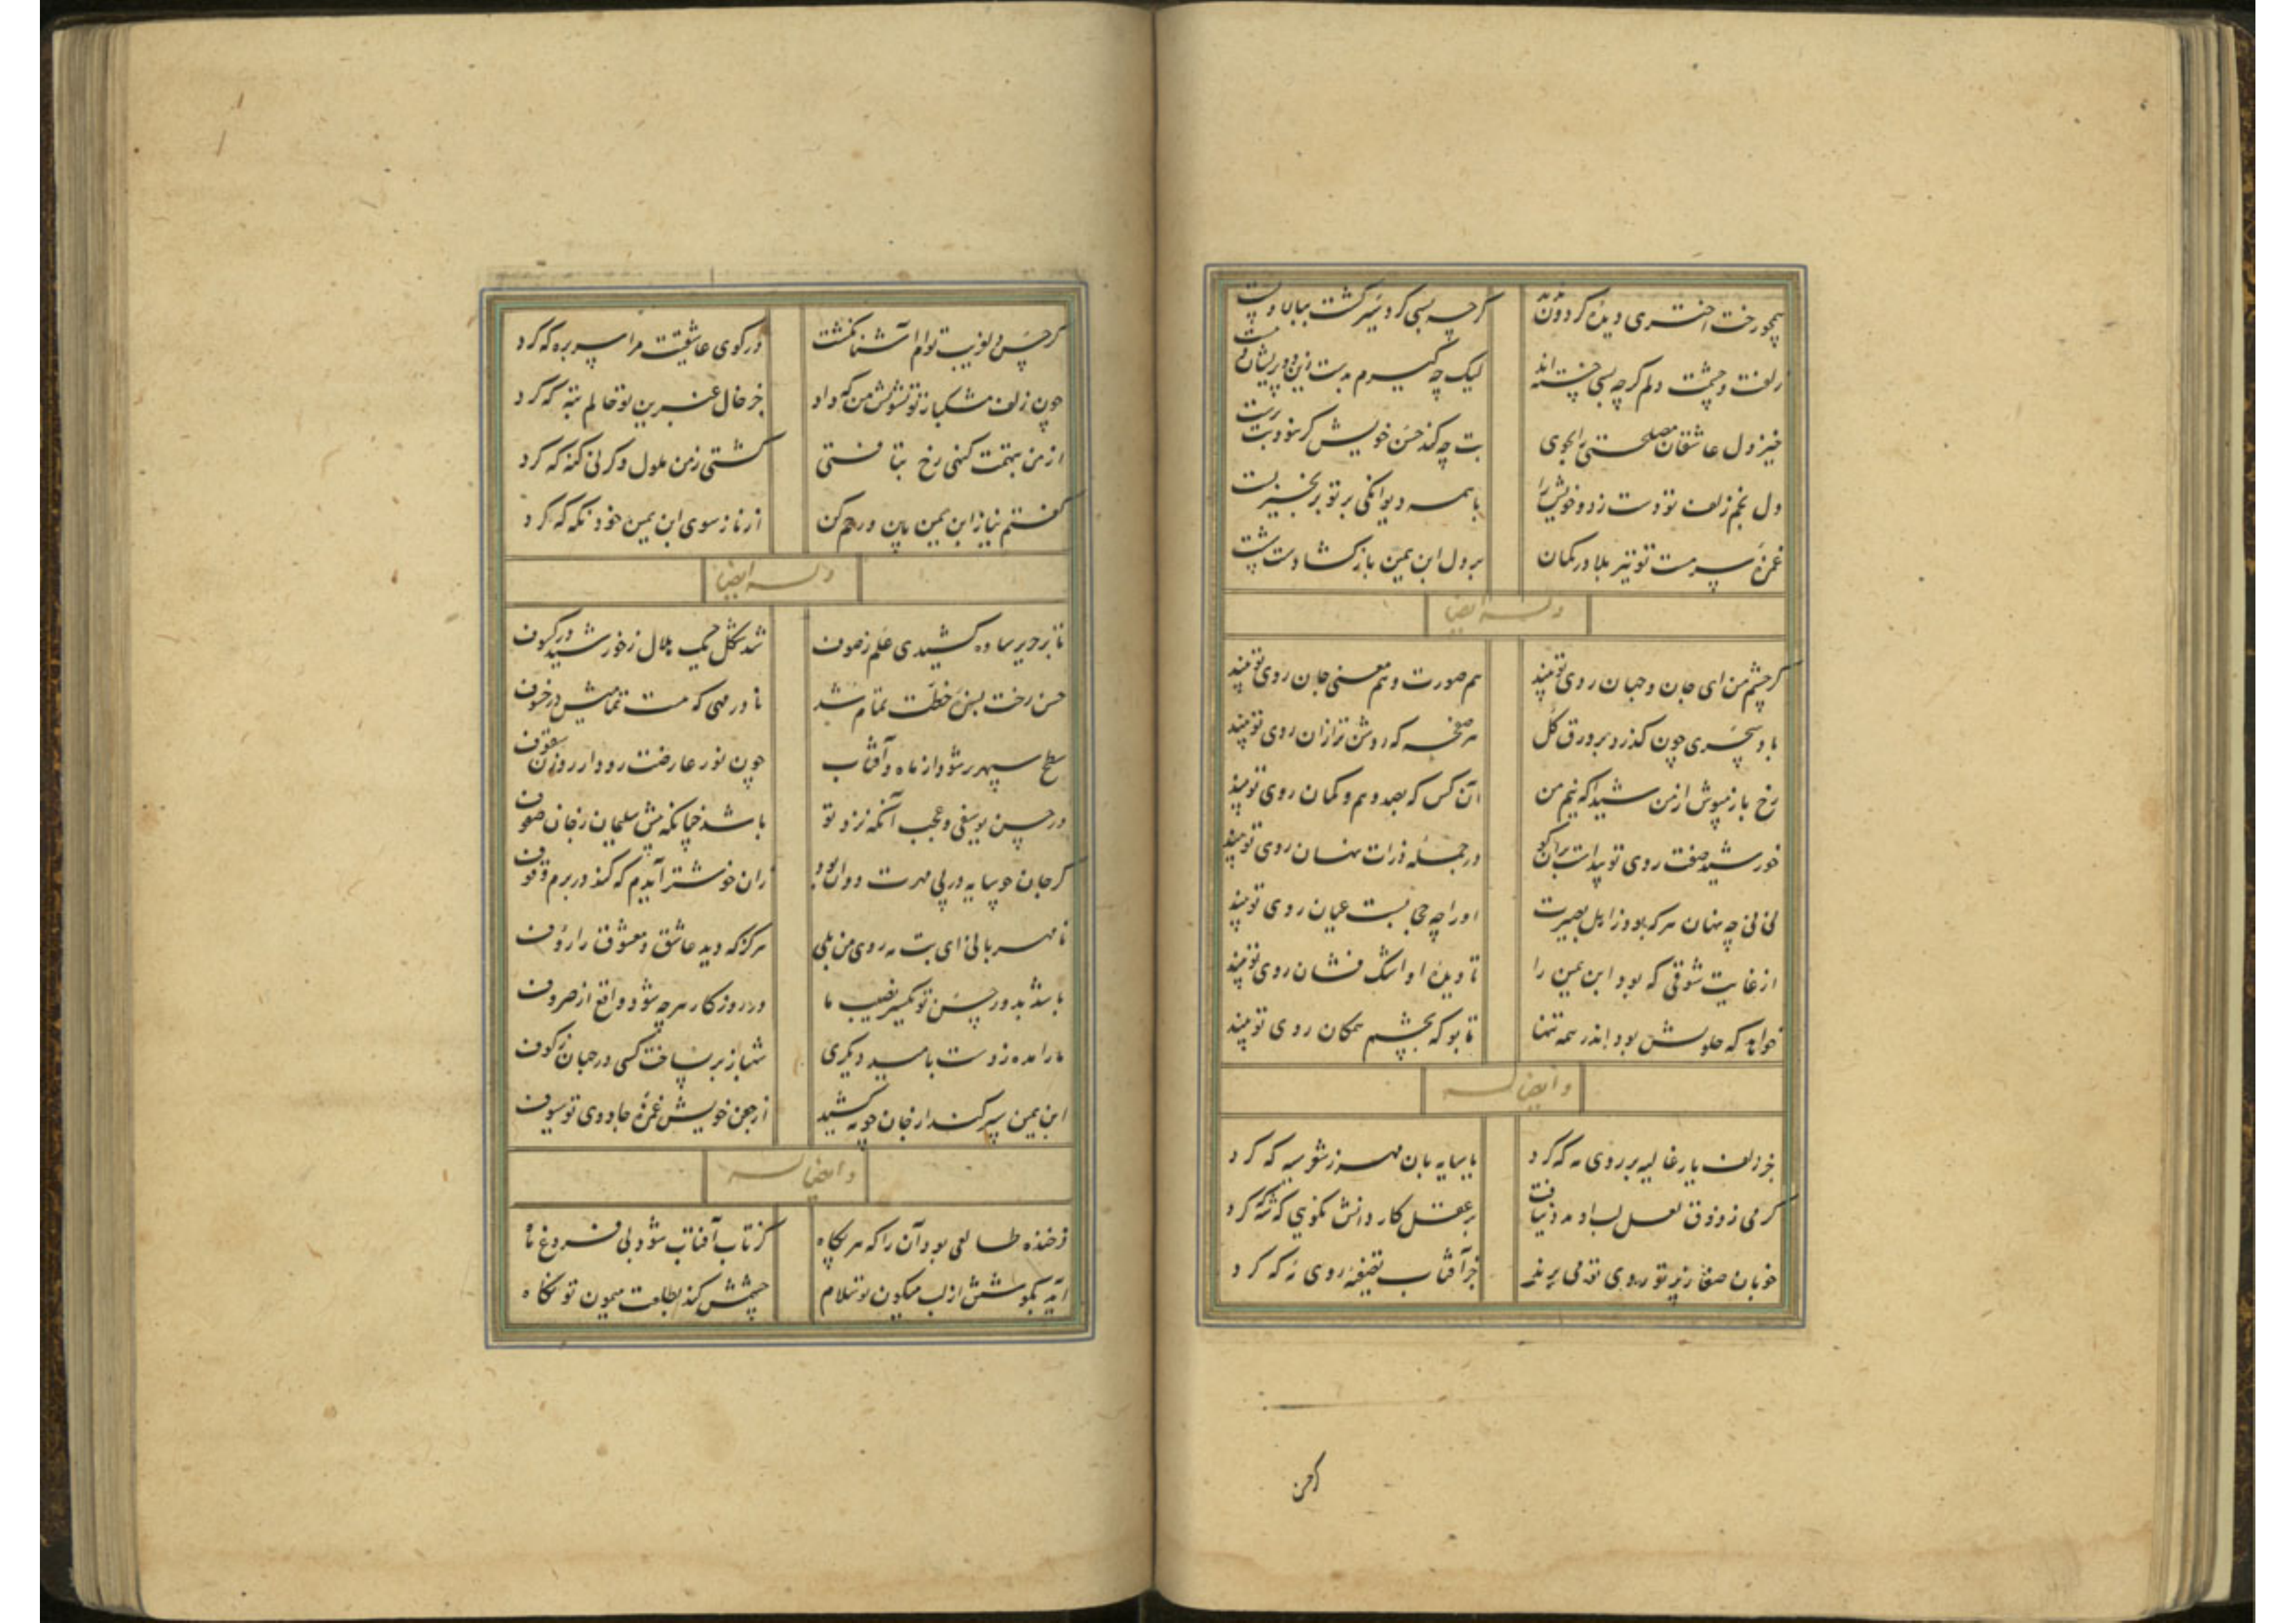 همچو رخت اختری دیدهٔ گردون ندید گرچه بسی کرد سیر گشت ببالا و پست
زلف و چشمت دلم گرچه بسی خسته‌اند لیک چه گیرم بدست زین دو پریشان و مست
خیز و دل عاشقان مصلحتی را بجوی بت چه کند حسن خویش گر نبود بت پرست
دل بخم زلف تو دست زد و خویش را با همه دیوانگی بر تو بزنجیر بست
غمزهٔ سرمست تو تیر بلا در کمان بر دل ابن یمین باز گشادست شست
وله ایضا
گر چشم من ای جان و جهان روی تو بیند هم صورت و هم معنی جان روی تو بیند
باد سحری چون گذرد بر ورق گل هر صفحه که روشن‌تر از آن روی تو بیند
رخ باز مپوش از من شیدا که نیم من آن کس که بصد وهم و گمان روی تو بیند
خورشید صفت روی تو پیداست بر آن کو در جمله ذرات نهان روی تو بیند
نی نی چه نهان هر که بود ز اهل بصیرت او را چه حجابست عیان روی تو بیند
از غایت شوقی که بود ابن یمین را تا دیدهٔ او اشک فشان روی تو بیند
خواهد که حلولش بود اندر همه تنها تا بو که بچشم همگان روی تو بیند
و ایضا له
جز زلف یار غالیه بر روی مه که کرد با سایه‌بان مهر ز شعر سیه که کرد
گر می ز ذوق لعل لب او مدد نیافت بر عقل کاردانش نگویی که شه که کرد
خوبان صفا ز پرتو روی تو می‌برند جز آفتاب تعبیهٔ روی مه که کرد
گر حسن
گر حسن دلفریب توام آشنا نگشت در کوی عاشقیت مرا سر بره که کرد
چون زلف مشکبار تو تشویش من که داد جز خال عنبرین تو حالم تبه که کرد
از من بتهمت گنهی رخ بتافتی گشتی ز من ملول و گر نی گنه که کرد
گفتم نیاز ابن یمین بین و رحم کن از ناز سوی ابن یمین خود نگه که کرد
وله ایضا
تا بر حریر ساده کشیدی علم ز صوف شد شکل جیب هلال ز خورشید در کسوف
حسن رخت بسی خطت تمام شد نادر مهی که هست تمامیش در خسوف
سطح سپهر بر شود از ماه و آفتاب چون نور عارضت رود از روزن سقوف
در حسن یوسفی و عجب آنکه نزد تو باشد چنانکه پیش سلیمان ز جان صفوف
گر جان چو سایه در پی مهرت دوان بود زان خوشتر آیدم که کند در برم وقوف
نامهربانی ای بت مه روی من بلی هرگز که دید عاشق و معشوق را رؤف
باشد بدور حسن تو نصیب ما در روزگار هرچه شود واقع از صروف
ما را مده ز دست بامید دیگری شهباز بر نساخت کسی در جهان ز کوف
ابن یمین سپر کند از جان چو برکشید از جفن خویش غمزهٔ جادوی تو سیوف
و ایضا له
فرخنده طالعی بود آن را که هر پگاه کز تاب آفتاب شود بی فروغ ماه
آید بگوشش از لب میگون تو سلام چشمش کند بطلعت میمون تو نگاه